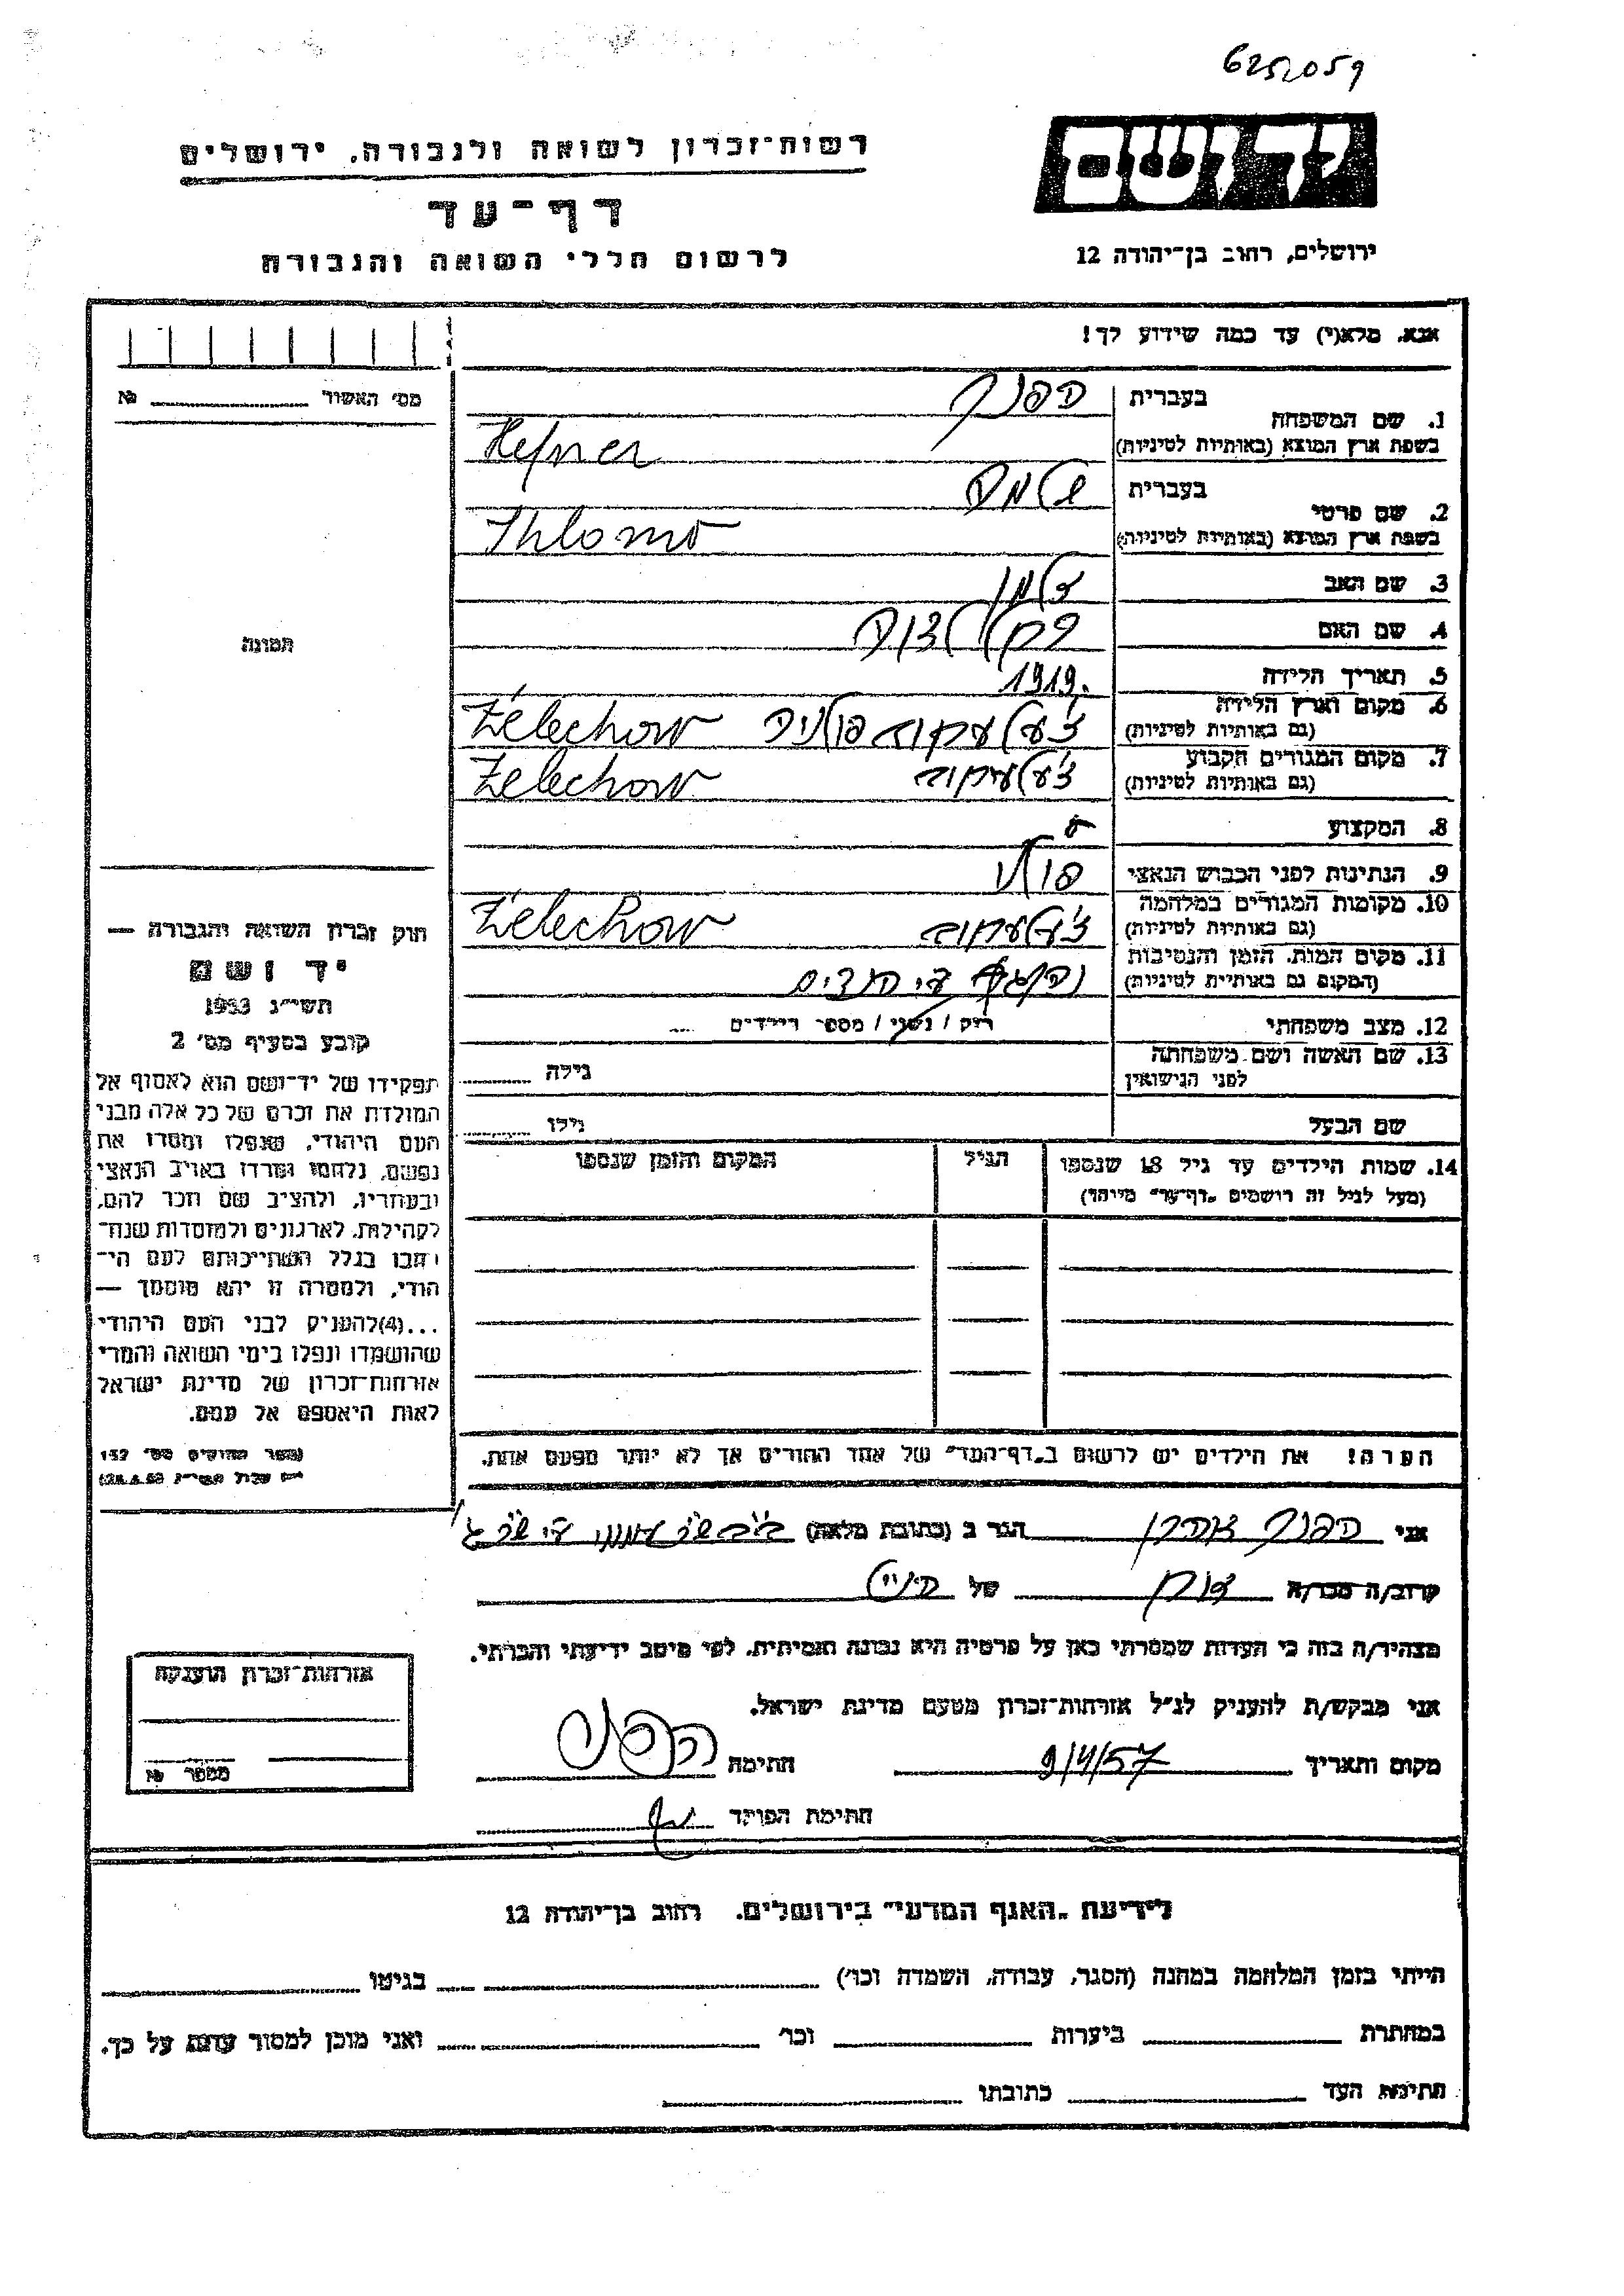 6252059
יד ושם
רשות־זכרון לשואה ולגבורה, ירושלים
דף־עד
לרשום חללי השואה והגבורה
ירושלים, רחוב בן־יהודה 12
אנא, מלא(י) עד כמה שידוע לך!
מס׳ האשור №
1. שם המשפחה בעברית הפנר
בשפת ארץ המוצא (באותיות לטיניות) Hefner
2. שם פרטי בעברית שלמה
בשפת ארץ המוצא (באותיות לטיניות) Shlomo
3. שם האב זלמן
4. שם האם
5. תאריך הלידה 1919.
6. מקום וארץ הלידה
(גם באותיות לטיניות) פולניה Żelechow
7. מקום המגורים הקבוע
(גם באותיות לטיניות) Żelechow
8. המקצוע
9. הנתינות לפני הכבוש הנאצי פולני
10. מקומות המגורים במלחמה
(גם באותיות לטיניות) Żelechow
11. מקום המות, הזמן והנסיבות
(המקום גם באותיות לטיניות) ע״י הנצים
12. מצב משפחתי רוק / נשוי / מספר הילדים
13. שם האשה ושם משפחתה
לפני הנישואין גילה
שם הבעל גילו
14. שמות הילדים עד גיל 18 שנספו
(מעל לגיל זה רושמים „דף־עד״ מיוחד)
הגיל
המקום והזמן שנספו
הערה! את הילדים יש לרשום ב„דף־העד״ של אחד ההורים אך לא יותר מפעם אחת.
תמונה
חוק זכרון השואה והגבורה —
יד ושם
תשי״ג 1953
קובע בסעיף מס׳ 2
תפקידו של יד־ושם הוא לאסוף אל
המולדת את זכרם של כל אלה מבני
העם היהודי, שנפלו ומסרו את
נפשם, נלחמו ומרדו באויב הנאצי
ובעוזריו, ולהציב שם וזכר להם,
לקהילות, לארגונים ולמוסדות שנח־
רבו בגלל השתייכותם לעם הי־
הודי, ולמטרה זו יהא מוסמך —
...(4)להעניק לבני העם היהודי
שהושמדו ונפלו בימי השואה והמרי
אזרחות־זכרון של מדינת ישראל
לאות היאספם אל עמם.
ספר החוקים מס׳ 132
אני הפנר אהרן הגר ב (כתובת מלאה)
קרוב/ה מכר/ה של
מצהיר/ה בזה כי העדות שמסרתי כאן על פרטיה היא נכונה ואמיתית, לפי מיטב ידיעתי והכרתי.
אני מבקש/ת להעניק לנ״ל אזרחות־זכרון מטעם מדינת ישראל.
מקום ותאריך 9/4/57 חתימה
חתימת הפוקד
אזרחות־זכרון הוענקה
מספר №
לידיעת „האגף המדעי״ בירושלים, רחוב בן־יהודה 12
הייתי בזמן המלחמה במחנה (הסגר, עבודה, השמדה וכו׳) בגיטו
במחתרת ביערות וכו׳ ואני מוכן למסור עדות על כך.
חתימת העד כתובתו